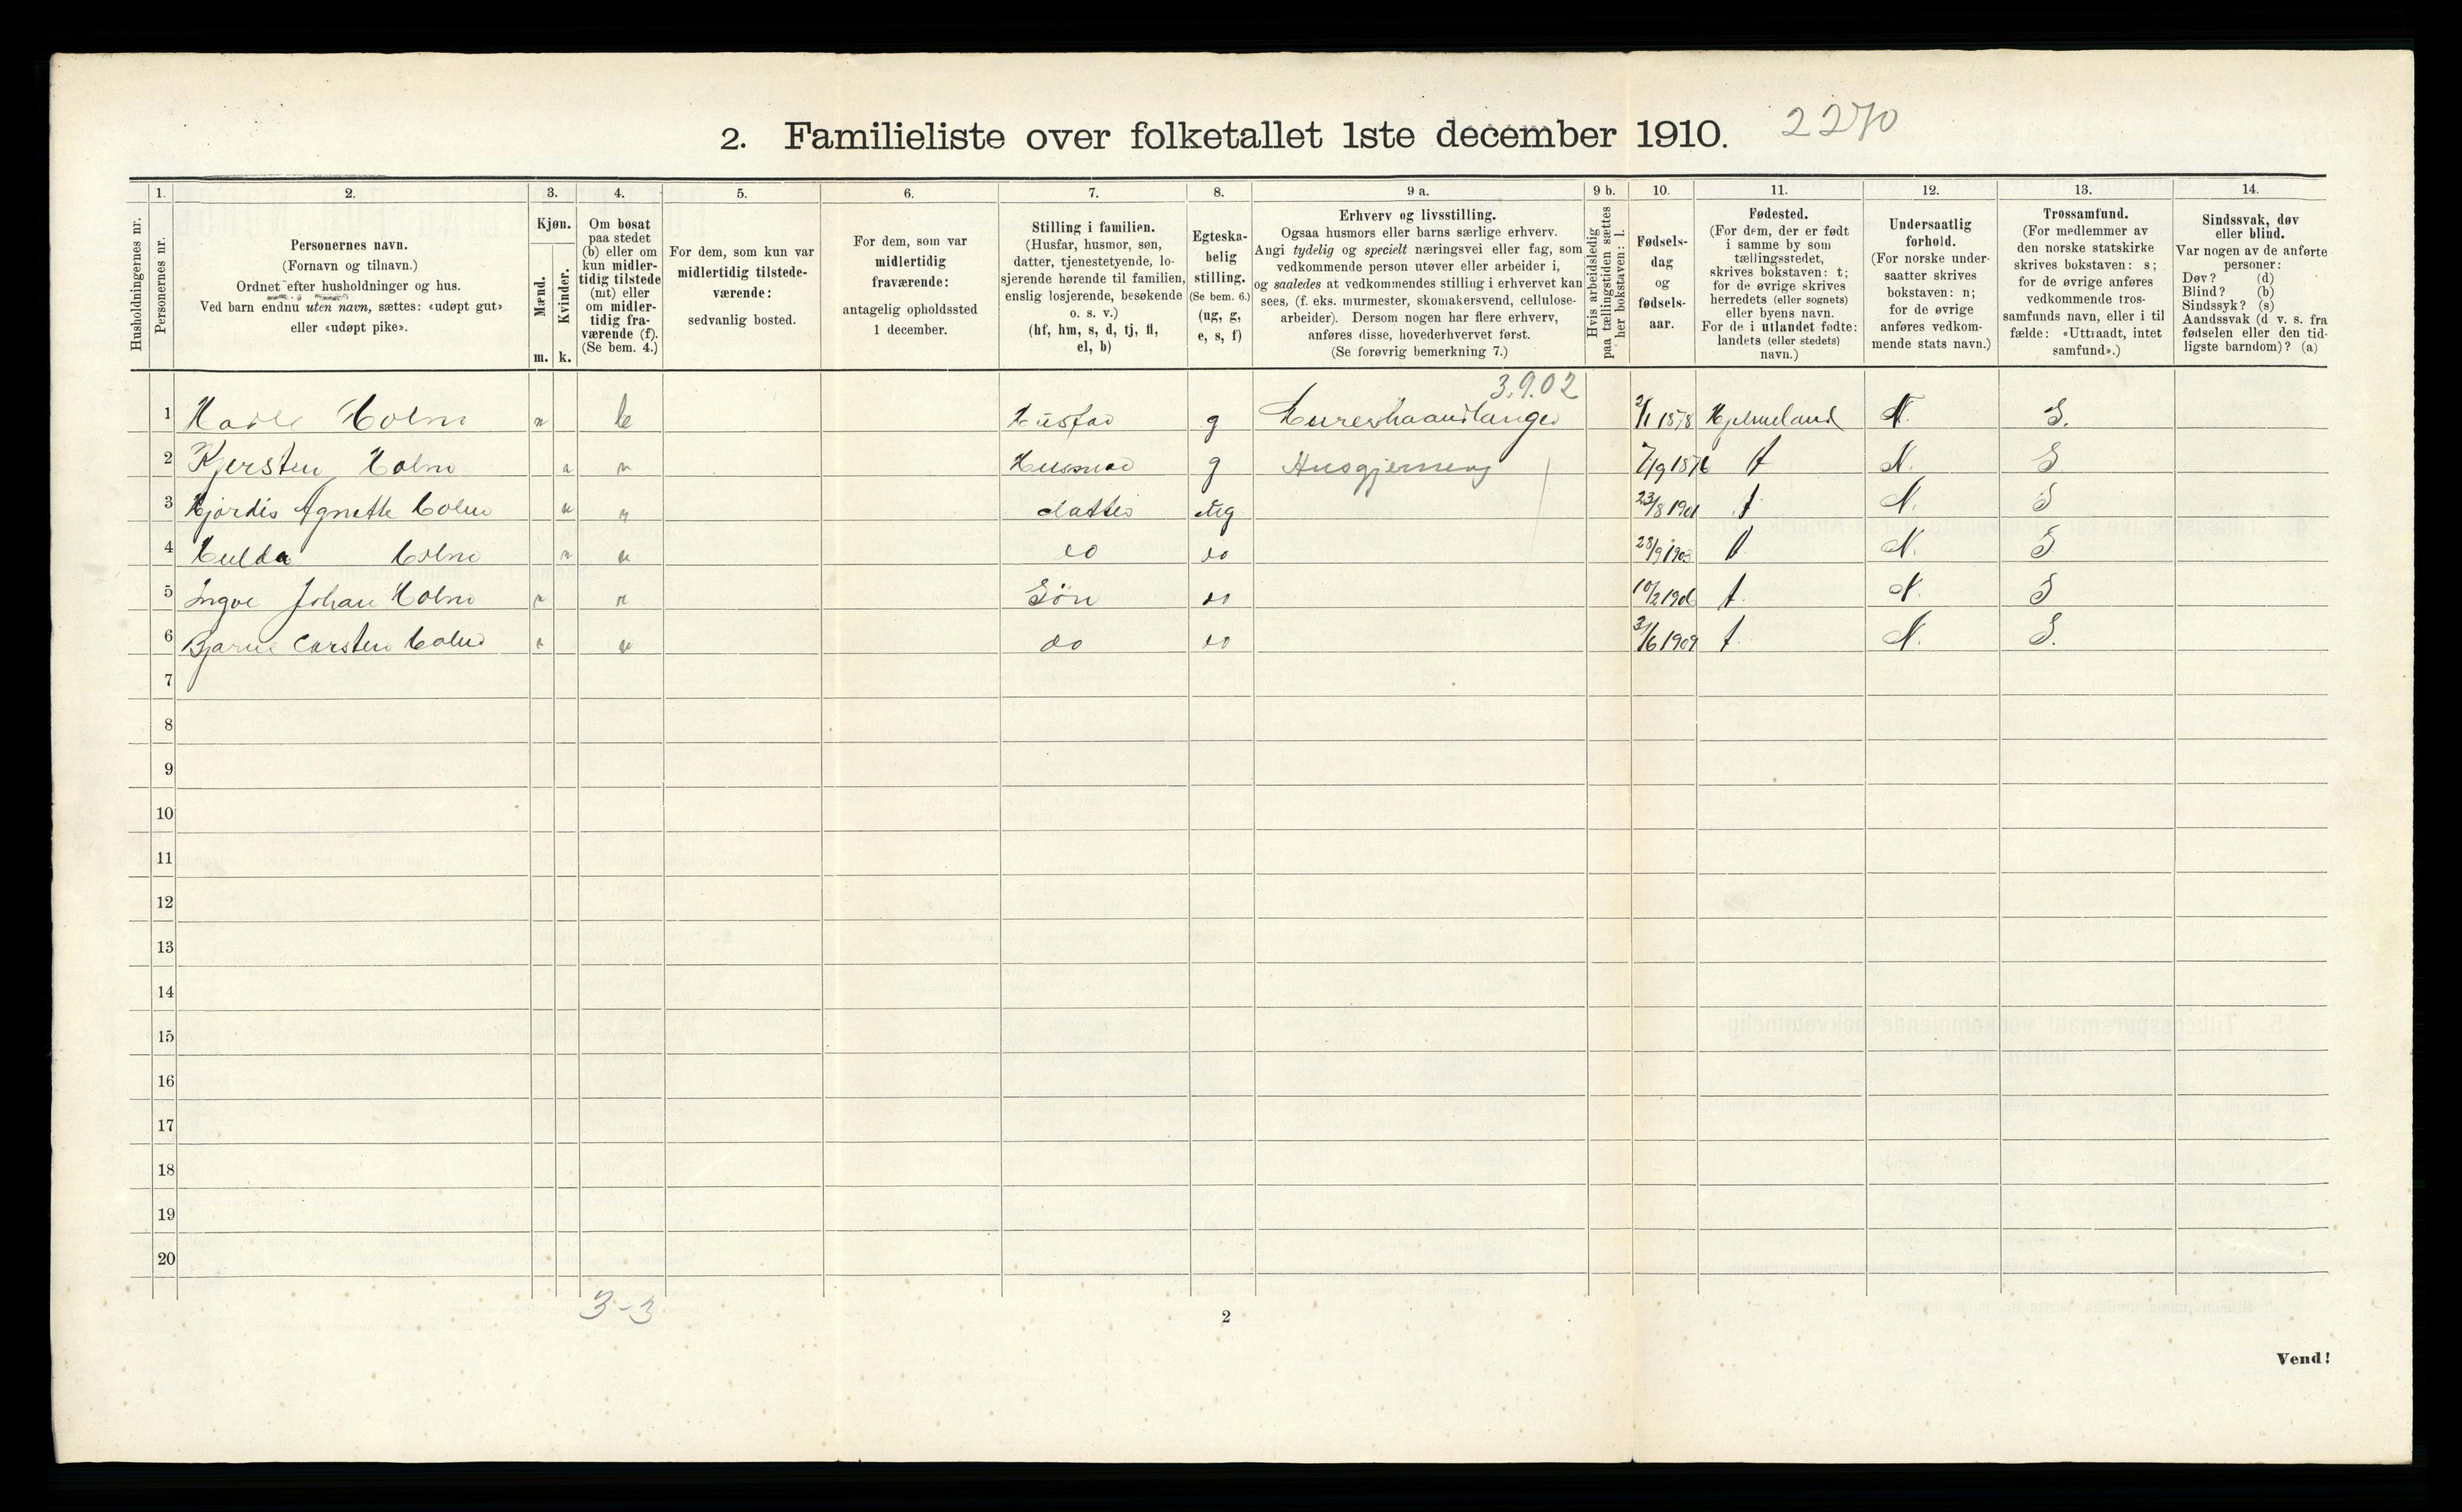 2. Familieliste over folketallet 1ste december 1910. 2270
1. 2. 3. 4. 5. 6. 7. 8. 9 a. 9 b. 10. 11. 12. 13. 14.
Husholdningernes nr.
Personernes nr.
Personernes navn.
(Fornavn og tilnavn.)
Ordnet efter husholdninger og hus.
Ved barn endnu uten navn, sættes: «udøpt gut»
eller «udøpt pike».
Kjøn.
Mænd.
Kvinder.
m. k.
Om bosat
paa stedet
(b) eller om
kun midler-
tidig tilstede
(mt) eller
om midler-
tidig fra-
værende (f).
(Se bem. 4.)
For dem, som kun var
midlertidig tilstede-
værende:
sedvanlig bosted.
For dem, som var
midlertidig
fraværende:
antagelig opholdssted
1 december.
Stilling i familien.
(Husfar, husmor, søn,
datter, tjenestetyende, lo-
sjerende hørende til familien,
enslig losjerende, besøkende
o. s. v.)
(hf, hm, s, d, tj, fl,
el, b)
Egteska-
belig
stilling.
(Se bem. 6.)
(ug, g,
e, s, f)
Erhverv og livsstilling.
Ogsaa husmors eller barns særlige erhverv.
Angi tydelig og specielt næringsvei eller fag, som
vedkommende person utøver eller arbeider i,
og saaledes at vedkommendes stilling i erhvervet kan
sees, (f. eks. murmester, skomakersvend, cellulose-
arbeider). Dersom nogen har flere erhverv,
anføres disse, hovederhvervet først.
(Se forøvrig bemerkning 7.)
Hvis arbeidsledig
paa tællingstiden sættes
her bokstaven: l.
Fødsels-
dag
og
fødsels-
aar.
Fødested.
(For dem, der er født
i samme by som
tællingsstedet,
skrives bokstaven: t;
for de øvrige skrives
herredets (eller sognets)
eller byens navn.
For de i utlandet fødte:
landets (eller stedets)
navn.)
Undersaatlig
forhold.
(For norske under-
saatter skrives
bokstaven: n;
for de øvrige
anføres vedkom-
mende stats navn.)
Trossamfund.
(For medlemmer av
den norske statskirke
skrives bokstaven: s;
for de øvrige anføres
vedkommende tros-
samfunds navn, eller i til
fælde: «Uttraadt, intet
samfund».)
Sindssvak, døv
eller blind.
Var nogen av de anførte
personer:
Døv? (d)
Blind? (b)
Sindssyk? (s)
Aandssvak (d v. s. fra
fødselen eller den tid-
ligste barndom)? (a)
3.9.02
1 Karl Holm " b Husfar g Murerhaandlanger 2/1 1878 Hjelmeland N. S.
2 Kjersten Holm " " Husmor g Husgjerning 7/9 1876 t N. S
3 Hjørdis Agnethe Holm " " datter ug 23/8 1901 t N. S
4 Hulda Holm " " do do 28/9 1903 t N. S
5 Ingve Johan Holm " " Søn do 10/2 1906 t. N. S
6 Bjarne Carsten Holm " " do do 3/6 1909 t. N. S.
7
8
9
10
11
12
13
14
15
16
17
18
19
20
3-3
2
Vend!